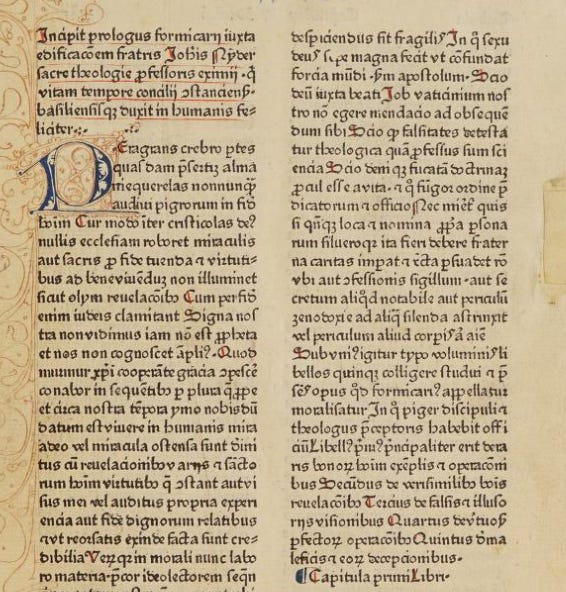 Incipit prologus formicarii iuxta
edificacōem fratris Johīs Nyder
sacre theologie ꝓfessoris eximii · q̄
vitam tempore concilii ɔstanciens̄·
basiliensisqꝫ duxit in humanis fe⸗
liciter·:·
PEragrans crebro ꝑtes
quasdam p̄sertī alma
nie querelas nonnunqͣ
audiui pigrorum in fid
hoīm Cur modo iter cristicolas de?
nullis ecclesiam roboret miraculis
aut sacris ꝓ fide tuenda ⁊ virtuti⸗
bus ad beneviuēduꝫ non illuminet
sicut olym reuelacōibꝫ Cum perfid
enim iudeis clamitant Signa nos
tra non vidimus iam nō est ꝓpheta
et nos non cognoscet āpli? · Quod
murmur xp̄i cooperāte gracia ɔpescē
conabor in sequētibꝫ ꝑ plura q̄ ꝓpe
et circa nostra tēpora ymo nobis dū
datum est viuere in humanis mira
adeo vel miracula ostensa sunt diui
tus cū reuelacionibꝫ variis ⁊ sācto
rum hoīm virtutibꝫ q̄ ɔstant aut vi
sus mei vel auditus propria experi
encia aut fide dignorum relatibus
⁊ vt reor satis exinde facta sunt cre⸗
dibilia Verꝫ qꝛ in morali nunc labo
ro materia · p̄cor ideo lectorem seqn̄
despiciendus sit fragiliꝰ In q̄ sexu
deuꝰ sepe magna fecit vt cōfundat
forcia mūdi · sm̄ apostolum · Scio
deū iuxta beati Job vaticinium nos
tro nō egere mendacio ad obsequē
dum sibi Scio ꝙ falsitates detesta
tur theologica quā ꝓfessus sum sci
encia Scio deniqꝫ fucatā doctrinaꝫ
ꝓcul esse a vita · ⁊ q̄ fūgor ordine p̄
dicatorum ⁊ officio Nec miret̄ quis
si qn̄qꝫ loca ⁊ nomina ꝓpͣa ꝑsona
rum siluero qꝛ ita fieri debere frater
na caritas imꝑat ⁊ cētͣ ꝑsuadet rō
vbi aut ɔfessionis sigillum · aut se
cretum aliqd̄ notabile aut periculū
zenodoxie ad aliqd̄ silenda astrinxit
vel periculum aliud corpis̄ ⁊ aīe
Sub vniꝰ igitur typo voluminis li
bellos quinqꝫ colligere studui ⁊ p̄
sens̄ opus qd̄ formicariꝰ appellatur
moralisatur In q̄ piger discipulꝰ ⁊
theologus p̄ceptoris habebit offi
ciū Libellꝰ p̄muꝰ p̄ncipaliter erit de ra
ris bonoꝝ hoīm exēplis ⁊ operacōni
bus Secūdus de verisimilibꝫ bōis
reuelacōibꝫ Tercius de falsis ⁊ illuso
riis visionibus Quartus de vtuosꝰ
ꝑfectoꝝ operacōibꝫ Quintus d̄ ma
leficis ⁊ eoꝝ decepcionibus·
¶ Capitula primi Libri·